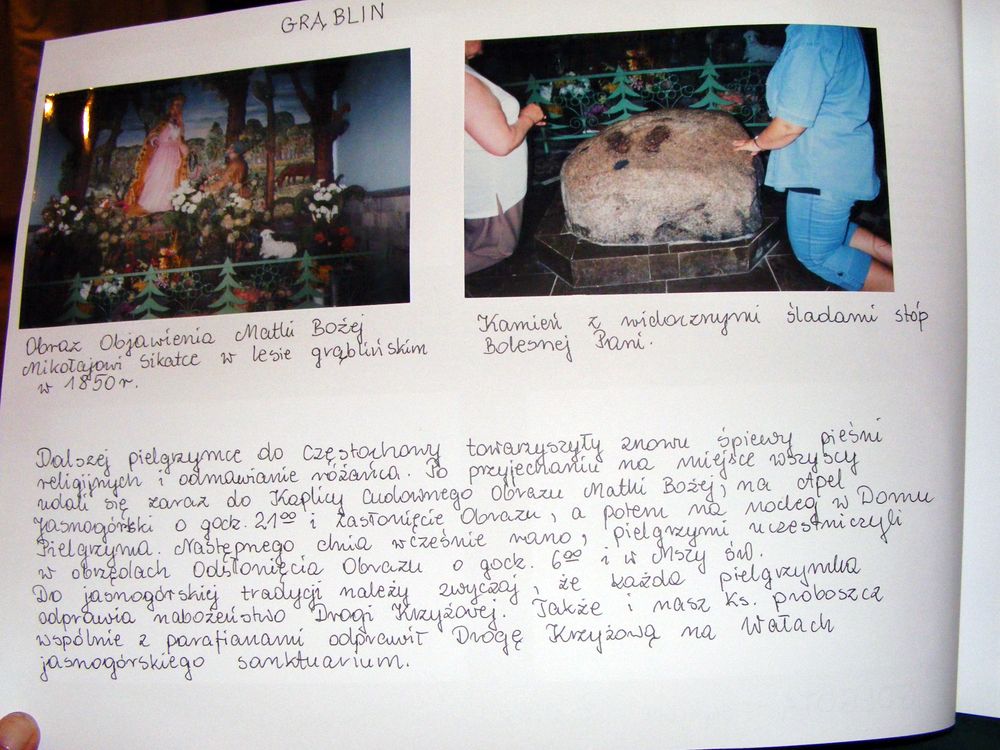 GRĄBLIN
Obraz Objawienia Matki Bożej
Mikołajowi Sikatce w lesie grąblińskim
w 1850r.
Kamień z widocznymi śladami stóp
Bolesnej Pani.
Dalszej pielgrzymce do Częstochowy towarzyszyły znowu śpiewy pieśni
religijnych i odmawianie różańca. Po przyjechaniu na miejsce wszyscy
udali się zaraz do Kaplicy Cudownego Obrazu Matki Bożej, na Apel
Jasnogórski o godz. 21⁰⁰ i Zasłonięcie Obrazu, a potem na nocleg w Domu
Pielgrzyma. Następnego dnia wcześnie rano, pielgrzymi uczestniczyli
w obrzędach Odsłonięcia Obrazu o godz. 6⁰⁰ i w Mszy św.
Do jasnogórskiej tradycji należy zwyczaj, że każda pielgrzymka
odprawia nabożeństwo Drogi Krzyżowej. Także i nasz ks. proboszcz
wspólnie z parafianami odprawił Drogę Krzyżową na Wałach
jasnogórskiego sanktuarium.